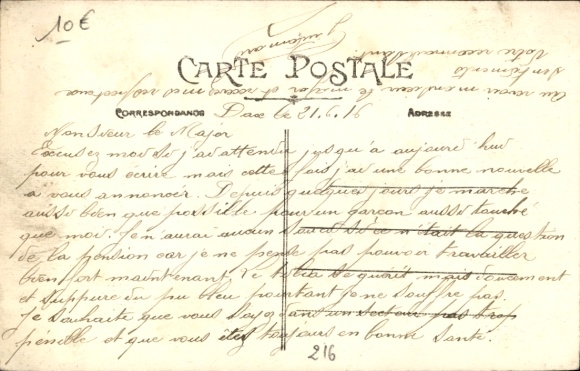 10€
CARTE POSTALE
CORRESPONDANCE
Dax le 21.6.16
ADRESSE
Monsieur le Major
Excusez moi si j'ai attendu jusqu'à aujourd'hui
pour vous écrire mais cette fois j'ai une bonne nouvelle
a vous annoncér. Depuis quelques jours je marche
aussi bien que possible pour un garçon aussi touché
que moi. Je n'aurai aucun souci si ce n'était la question
de la pension car je ne pense pas pouvoir travailler
bien fort maintenant. Le se guérit mais doucement
et suppure du pu bleu pourtant je ne souffre pas.
Je souhaite que vous soyez dans un secteur pas trop
pénible et que vous êtes toujours en bonne santé.
Au revoir monsieur le major et recevez mes respectueux
sentiments
Votre reconnaissant
216